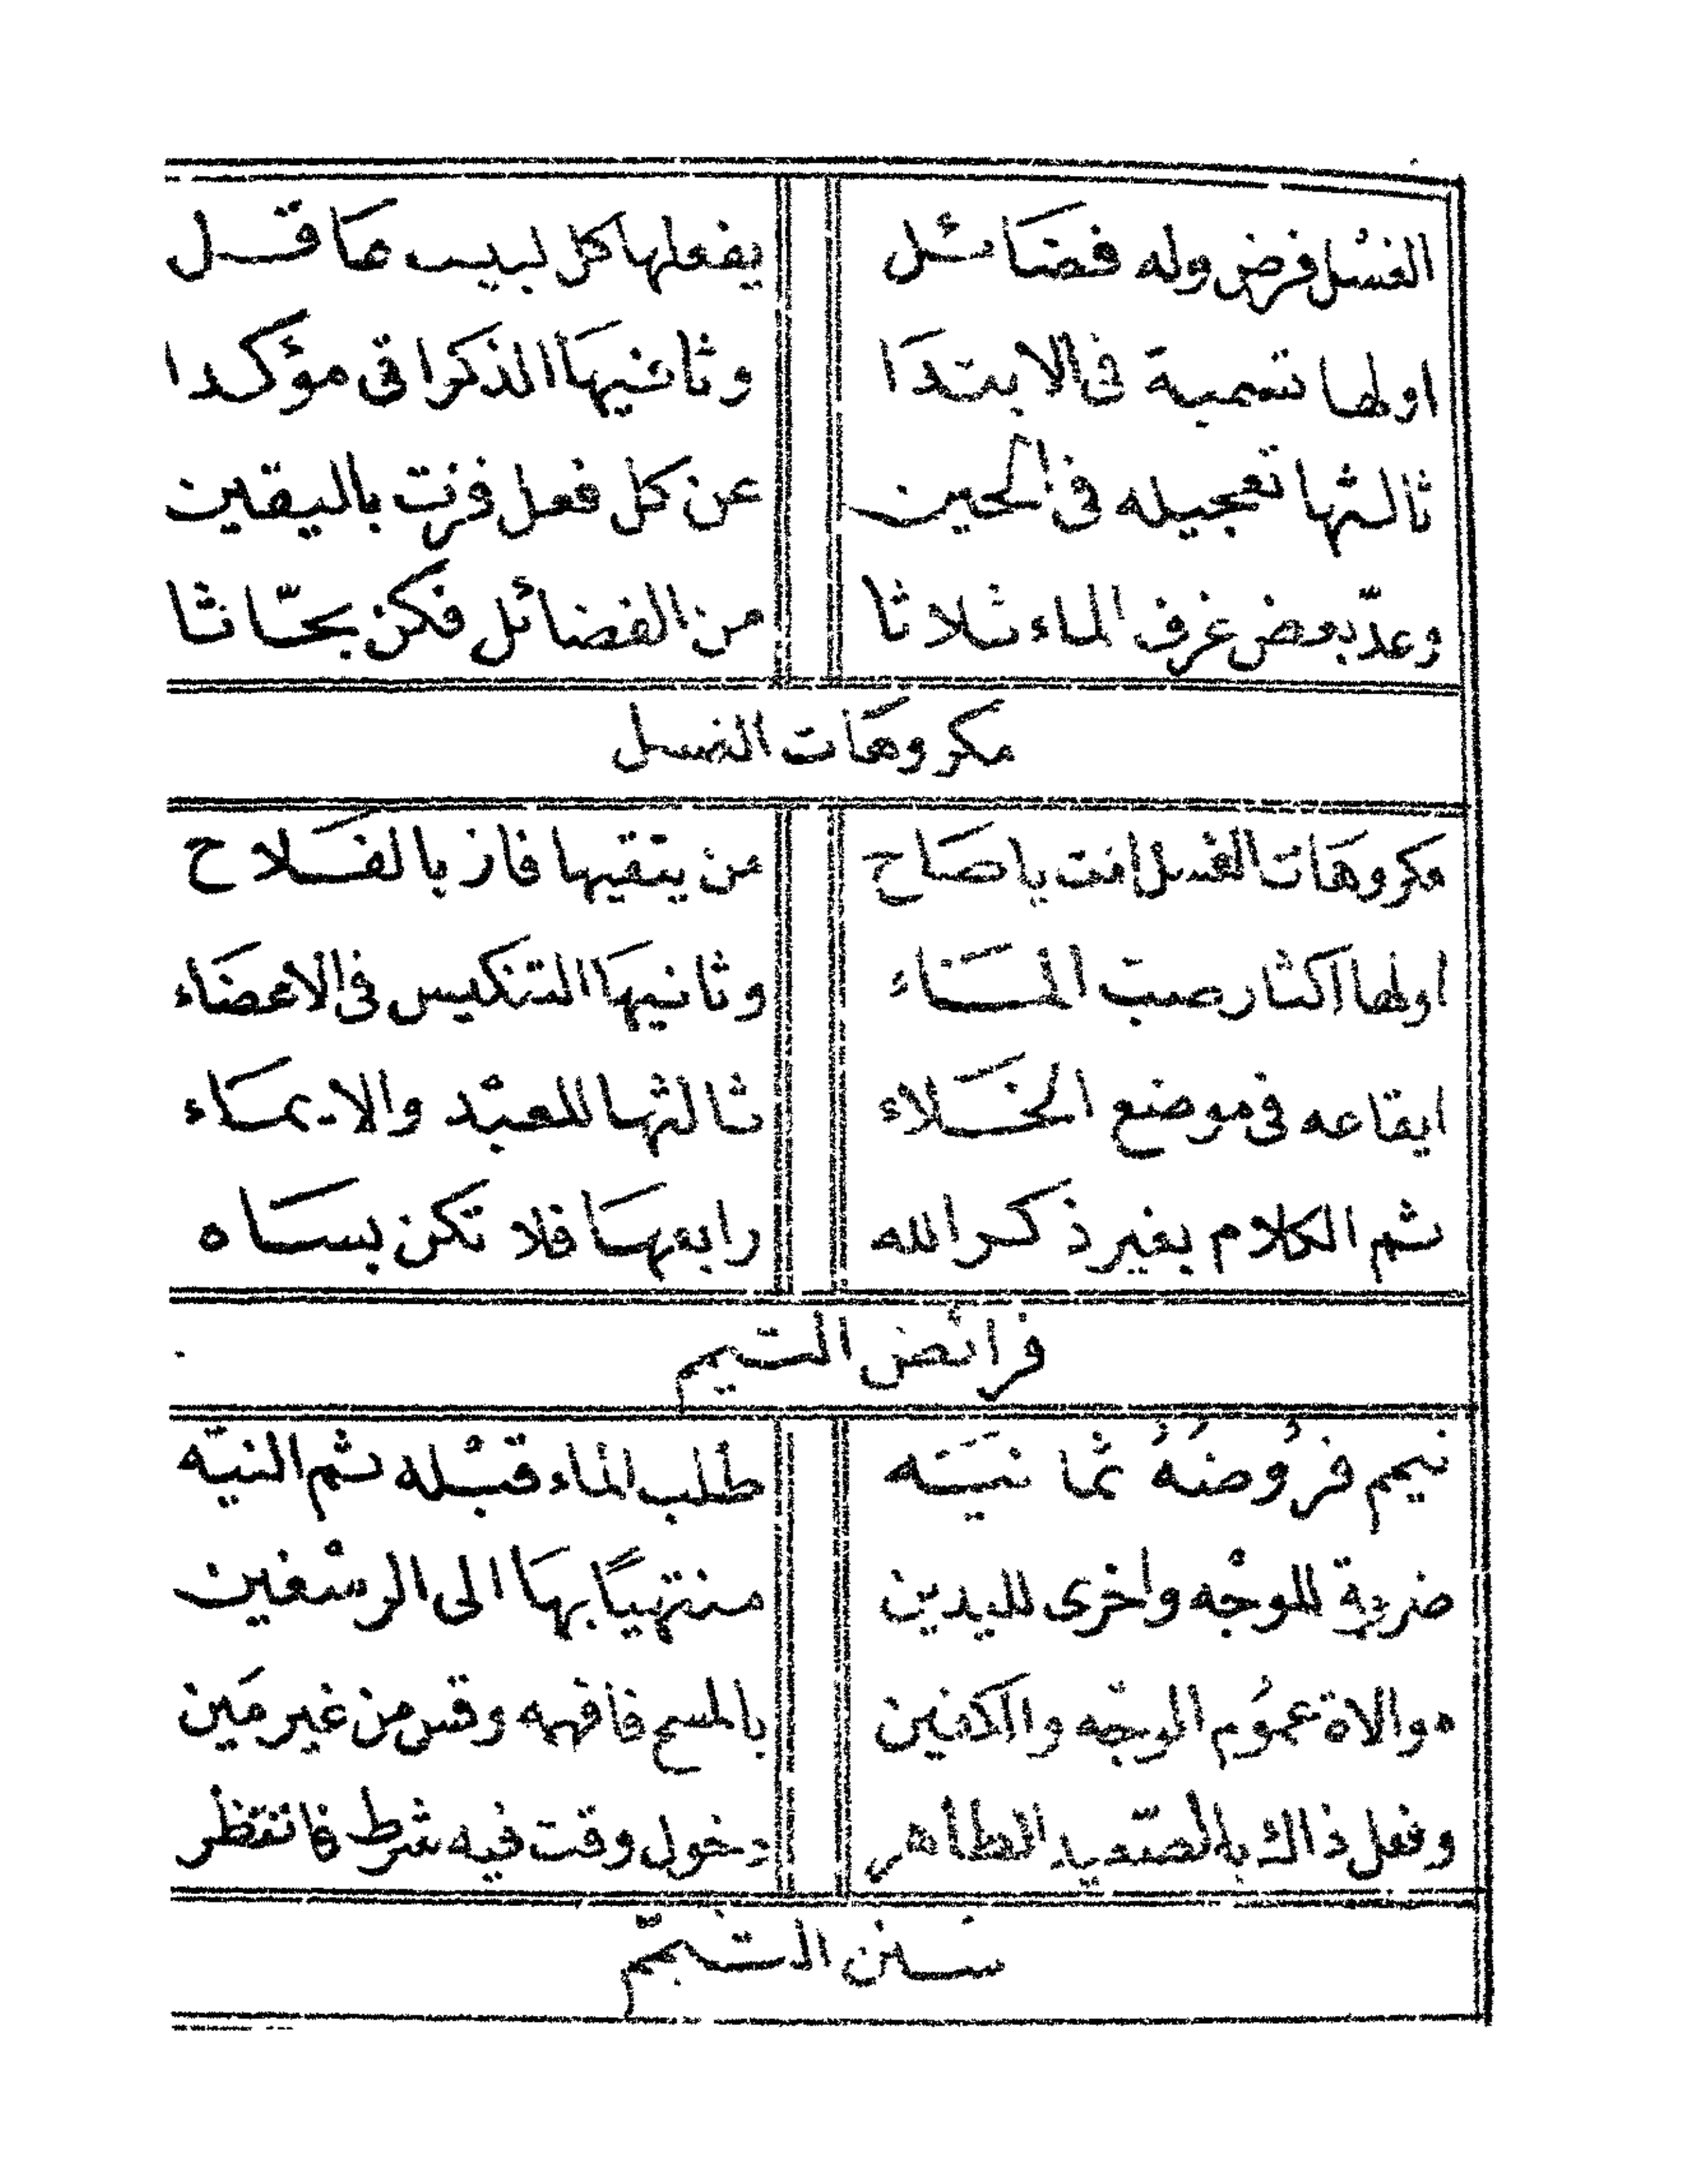 الغسل فرض وله فضائل يفعلها كل لبيب عاقل
اولها تسمية فى الابتدا وثانيها الذكر اتى مؤكدا
ثالثها تعجيله فى الحين عن كل فعل فزت باليقين
وعدّ بعض غرف الماء ثلاثا من الفضائل فكن بحّاثا
مكروهات الغسل
مكروهات الغسل اتت ياصاح من يتقيها فاز بالفلاح
اولها اكثار صب الماء وثانيها التنكيس فى الاعضاء
ايقاعه فى موضع الخلاء ثالثها للعبد والايماء
ثم الكلام بغير ذكر الله رابعها فلا تكن بساه
فرائض التيمم
تيمم فُروضهُ ثمانيَه طلب الماء قبْله ثم النيّه
ضربة للوجْه واخرى لليدين منتهيًا بهَا الى الرسْغين
موالاة عمُوم الوجْه والكفين بالمسح فافهمه وقس من غير مَين
وفعل ذاك بالصّعيد الطاهر دخول وقت فيه شرط فانتظر
سنن التيمّم